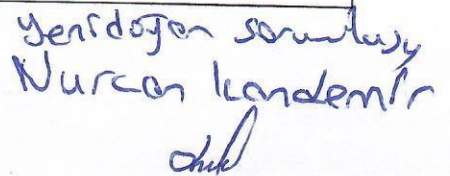 Yenidoğan sorumlusu
Nurcan Kandemir